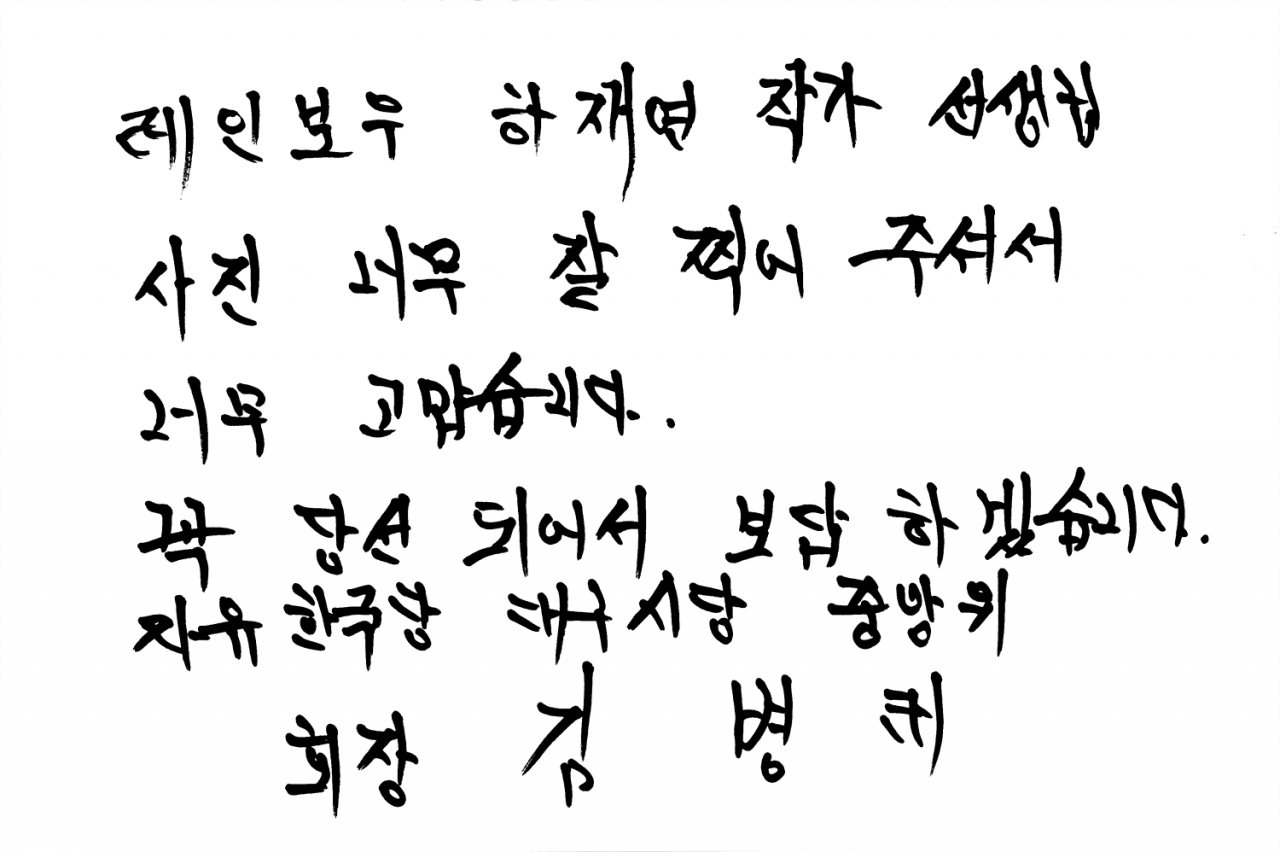 레인보우 하재연 작가 선생님
사진 너무 잘 찍어 주셔서
너무 고맙습니다..
꼭 당선 되어서 보답 하겠습니다.
자유한국당 대구시당 중앙위
회장 김 병 태